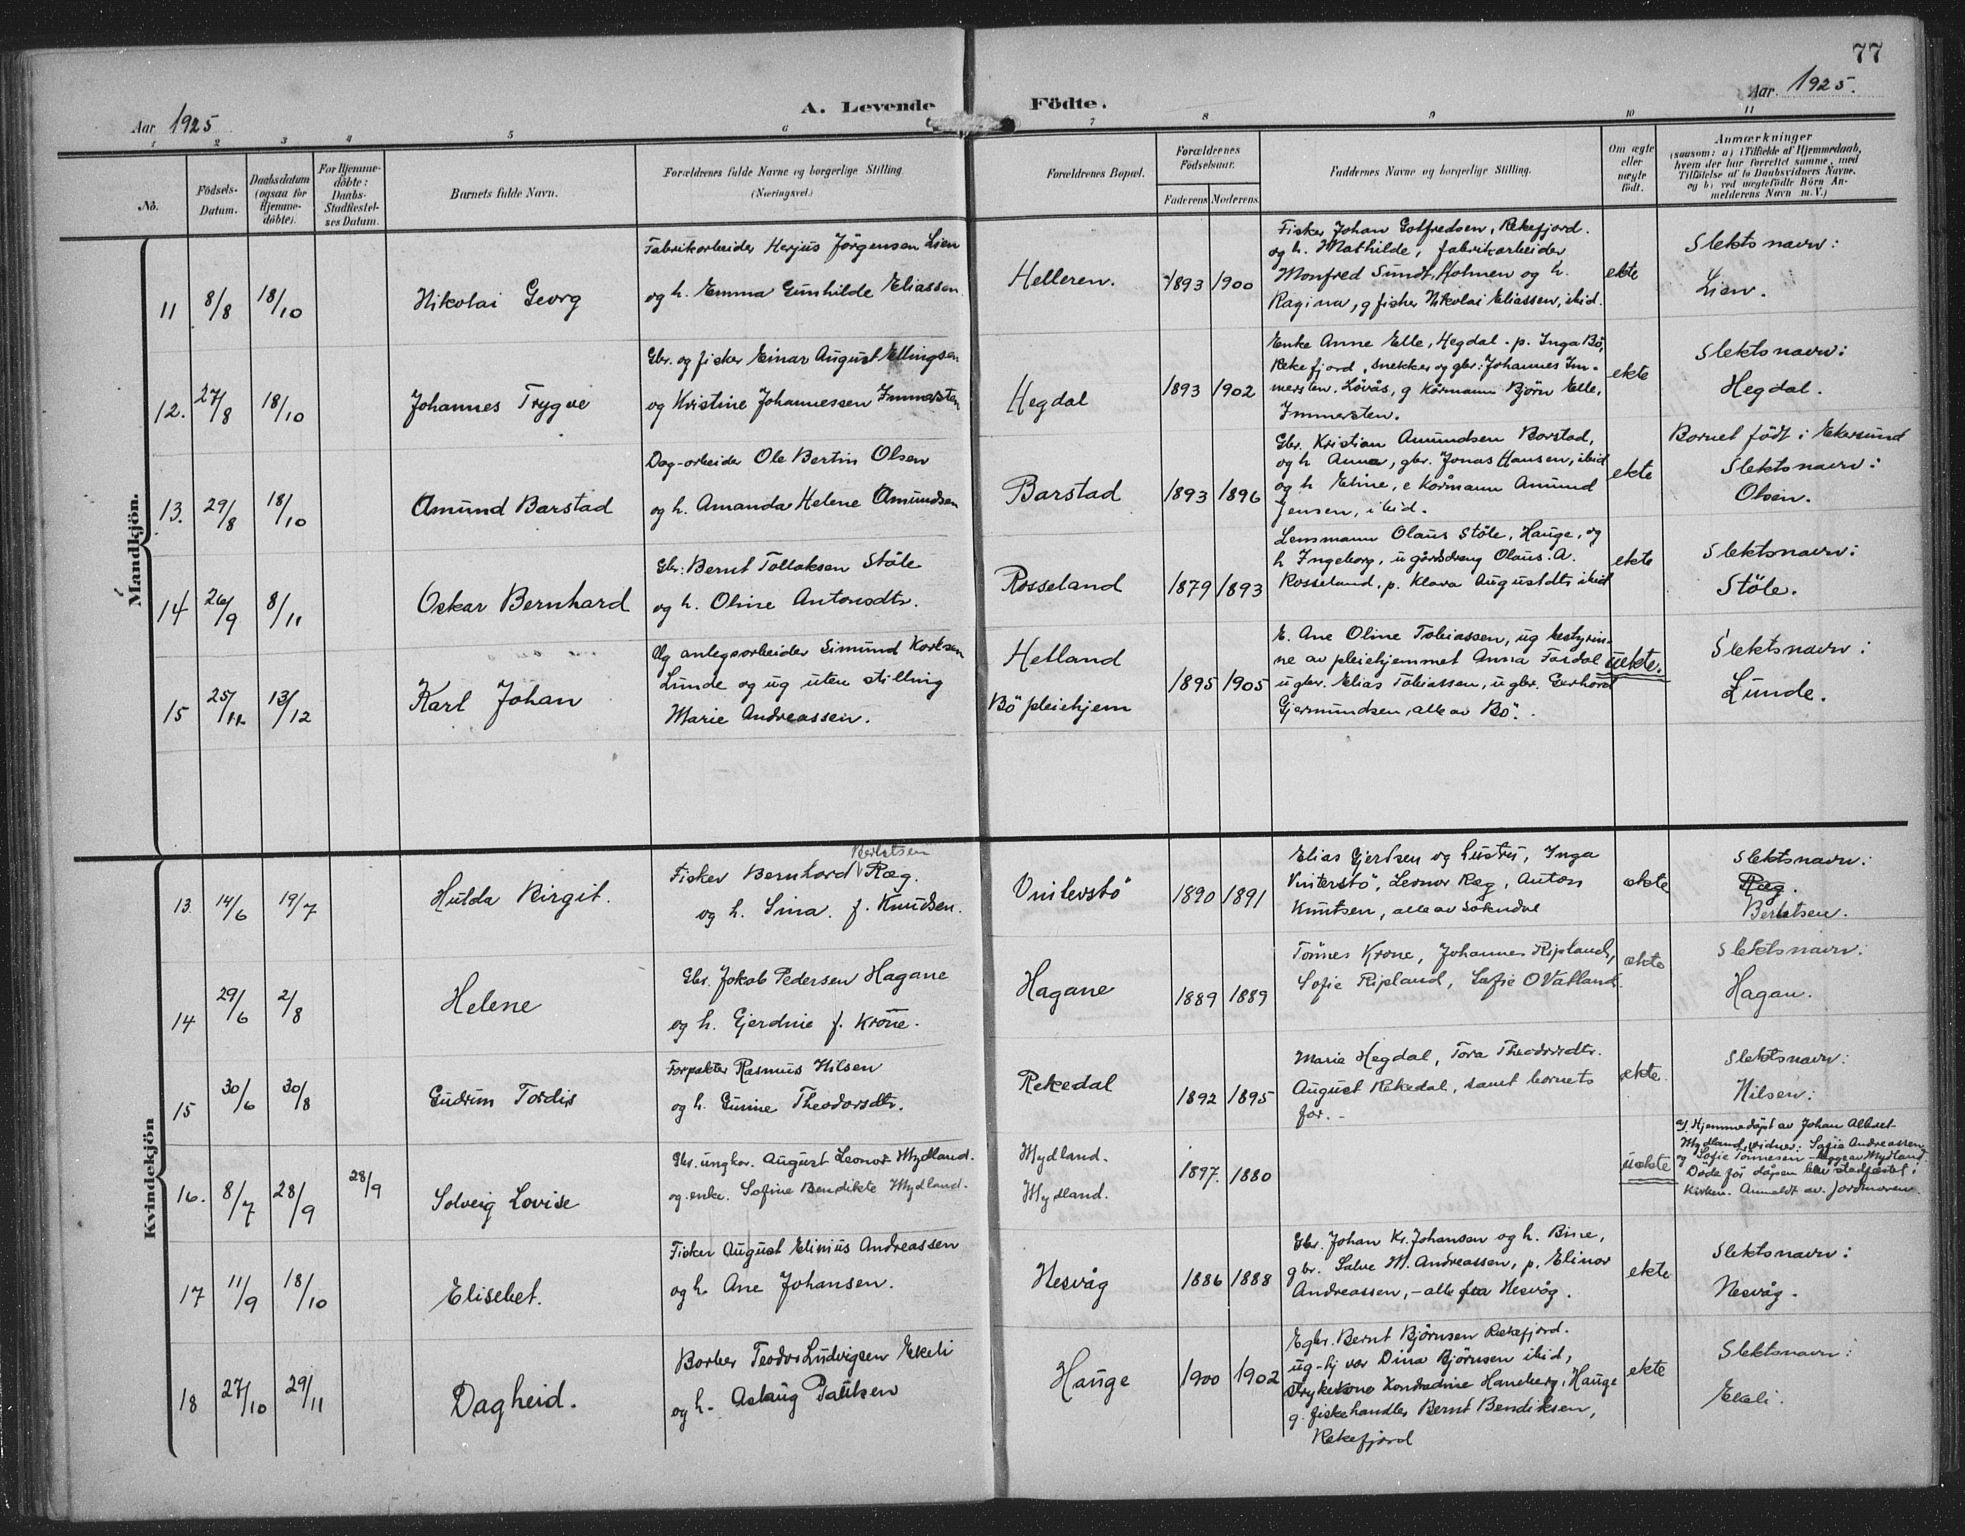 77
Aar 1925
A. Levende Fødte.
Aar 1925.
1 2 3 4 5 6 7 8 9 10 11
No.
Fødsels-
Datum.
Daabsdatum
(ogsaa for
Hjemme-
døbte).
For Hjemme-
døbte:
Daabs-
Stadfæstel-
ses Datum.
Barnets fulde Navn.
Forældrenes fulde Navne og borgerlige Stilling.
(Næringsvei.)
Forældrenes Bopæl.
Forældrenes
Fødselsaar.
Faderens Moderens
Faddernes Navne og borgerlige Stilling.
Om ægte
eller
uægte
født.
Anmærkninger
(saasom: a) i Tilfælde af Hjemmedaab,
hvem der har forrettet samme, med
Tilføielse af to Daabsvidners Navne,
og b) ved uægtefødte Børn An-
melderens Navn m. V.)
Mandkjøn.
11 8/8 18/10 Nikolai Georg
Fabrikarbeider Herjus Jørgensen Lien
og h. Emma Gunhilde Eliassen
Helleren. 1893 1900
Fisker Johan Gotfredsen, Rekefjord.
og h. Mathilde, fabrikarbeider
Monfred Sundt, Holmen og h.
Ragina, g fisker Nikolai Eliassen, ibid.
ekte
Slektsnavn:
Lien.
12. 27/8 18/10 Johannes Trygve
Gbr. og fisker Einar August Ellingsen
og Kristine Johannessen Immersten
Hegdal 1893 1902
Enke Anne Elle, Hegdal. p. Inga Bø,
Rekefjord, snekker og gbr: Johannes Im-
mersten. Løvås, g Kørmann Bjørn Elle,
Immersten.
ekte
Slektsnavn:
Hegdal.
13. 29/8 18/10 Amund Barstad
Dag-arbeider Ole Bertin Olsen
og h. Amanda Helene Amundsen
Barstad 1893 1896
Gbr. Kristian Amundsen Barstad,
og h Anna, gbr. Jonas Hansen, ibid
og h Eline, e kørmann Amund
Jensen, ibid.
ekte
Barnet født i Ekersund
Slektsnavn:
Olsen.
14 26/9 8/11 Oskar Bernhard
Gbr: Bernt Tollaksen Støle
og h. Oline Antonsdtr.
Rosseland 1879 1893
Lensmann Olaus Støle, Hauge, og
h Ingeborg, u gårdsdreng Olaus. A.
Rosseland, p. Klara Augustdtr ibid
ekte
Slektsnavn:
Støle.
15 25/11 13/12 Karl Johan
Ug anlegsarbeider Simund Karlsen
Lunde og ug uten stilling
Marie Andreassen.
Hetland
Bø pleiehjem
1895 1905
E. Ane Oline Tobiassen, ug bestyrin-
ne av pleiehjemmet Anna Tardal
u gbr. Elias Tobiassen, u gbr. Gerhard
Gjermundsen, alle av Bø.
uekte.
Slektsnavn:
Lunde.
Kvindekjøn
13. 14/6 19/7 Hulda Birgit.
Bertetsen
Fisker Bernhard Ræg.
og h. Sina. f. Knudsen.
Vinterstø 1890 1891
Elias Gjertsen og hustru, Inga
Vinterstø, Leonor Ræg, Anton
Knutsen, alle av Sokndal
ekte
Slektsnavn:
Ræg.
Bertetsen.
14 29/6 2/8 Helene
Gbr. Jakob Pedersen Hagane
og h. Gjerdine f. Krone.
Hagane 1889 1889
Tønnes Krone, Johannes Ripland,
Sofie Ripland, Sofie O Vatland.
ekte
Slektsnavn:
Hagan.
15 30/6 30/8 Gudrun Tordis
Forpakter Rasmus Nilsen
og h. Gurine Theodorsdtr.
Rekedal 1892 1895
Marie Hegdal, Tora Theodorsdtr.
August Rekedal, samt barnets
far.
ekte
Slektsnavn:
Nilsen.
16. 8/7 28/9 28/9 Solveig Lovise
Gbr. ungkar. August Leonor Mydland.
og enke. Sofine Bendikte Mydland.
Mydland.
Mydland.
1897. 1880
uekte
a/ Hjemmedøpt av Johan Albret
Mydland, vidner: Sofie Andreassen
og Sofie Tønnesen – begge av Mydland
Døde før dåpen blev stadfæstet i
Kirken. Anmeldt av jordmoren.
17 11/9 18/10 Elisebet.
Fisker August Elinius Andreassen
og h. Ane Johansen.
Nesvåg 1886 1888
Gbr. Johan Kr. Johansen og h. Bine,
gbr. Salve M. Andreassen, p. Elinor
Andreassen, – alle fra Nesvåg.
ekte
Slektsnavn:
Nesvåg.
18 27/10 29/11 Dagheid.
Barber Teodor Ludvigsen Ekeli
og h. Aslaug Paulsen
Hauge 1900 1902
E gbr. Bernt Bjørnsen Rekefjord.
ug-hj var Dina Bjørnsen ibid,
strykekone Kondradine Haneberg, Hauge
g. fiskehandler Bernt Bendiksen,
Rekefjord
ekte
Slektsnavn:
Ekeli.